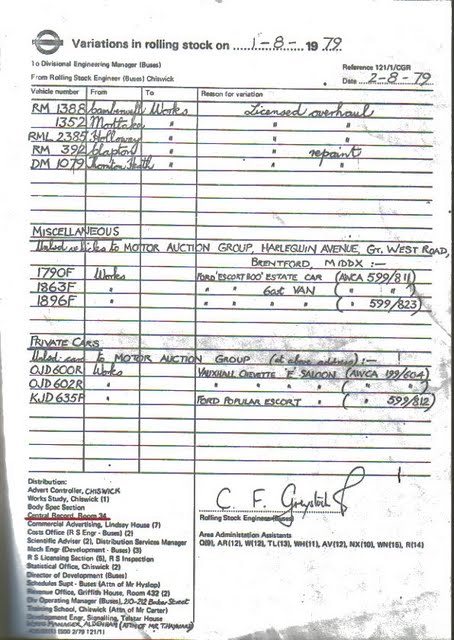 Variations in rolling stock on 1-8- 1979
To Divisional Engineering Manager (Buses)
Reference 121/1/CGR
From Rolling Stock Engineer (Buses) Chiswick
Date 2-8-79
Vehicle number From To Reason for variation
RM 1388 Camberwell Works Licensed overhaul
1352 Mortlake " " "
RML 2385 Holloway " " "
RM 392 Clapton " " repaint
DM 1079 Thornton Heath " " "
MISCELLANEOUS
to MOTOR AUCTION GROUP, HARLEQUIN AVENUE, GT. WEST ROAD,
BRENTFORD, MIDDX :-
1790F Works FORD 'ESCORT 1100' ESTATE CAR (AWCA 599/811)
1863F " " " 6cwt VAN ( " " " )
1896F " " " " ( " 599/823)
PRIVATE CARS
to MOTOR AUCTION GROUP (at above address) :-
OJD 600R Works VAUXHALL CHEVETTE 'E' SALOON (AWCA 199/604)
OJD 602R " " " " " ( " " )
KJD 635P " FORD POPULAR ESCORT " ( " 599/812)
Distribution:
Advert Controller, CHISWICK
Works Study, Chiswick (1)
Body Spec Section
Central Record, Room 34
Commercial Advertising, Lindsay House (7)
Costs Office (R S Engr - Buses) (2)
Scientific Adviser (2), Distribution Services Manager
Mech Engr (Development - Buses) (3)
R S Licensing Section (5), R S Inspection
Statistical Office, Chiswick (2)
Director of Development (Buses)
Schedules Supt - Buses (Attn of Mr Hyslop)
Revenue Office, Griffith House, Room 432 (2)
Div Operating Manager (Buses), 210-212 Baker Street
Training School, Chiswick (Attn of Mr Carter)
Development Engr, Signalling, Telstar House
WORKS MANAGER, ALDENHAM (ATTN OF MR
C. F. Greystock
Rolling Stock Engineer (Buses)
Area Administration Assistants
Q(9), AR(12), W(12), TL(13), WH(11), AV(12), NX(10), WN(15), R(14)